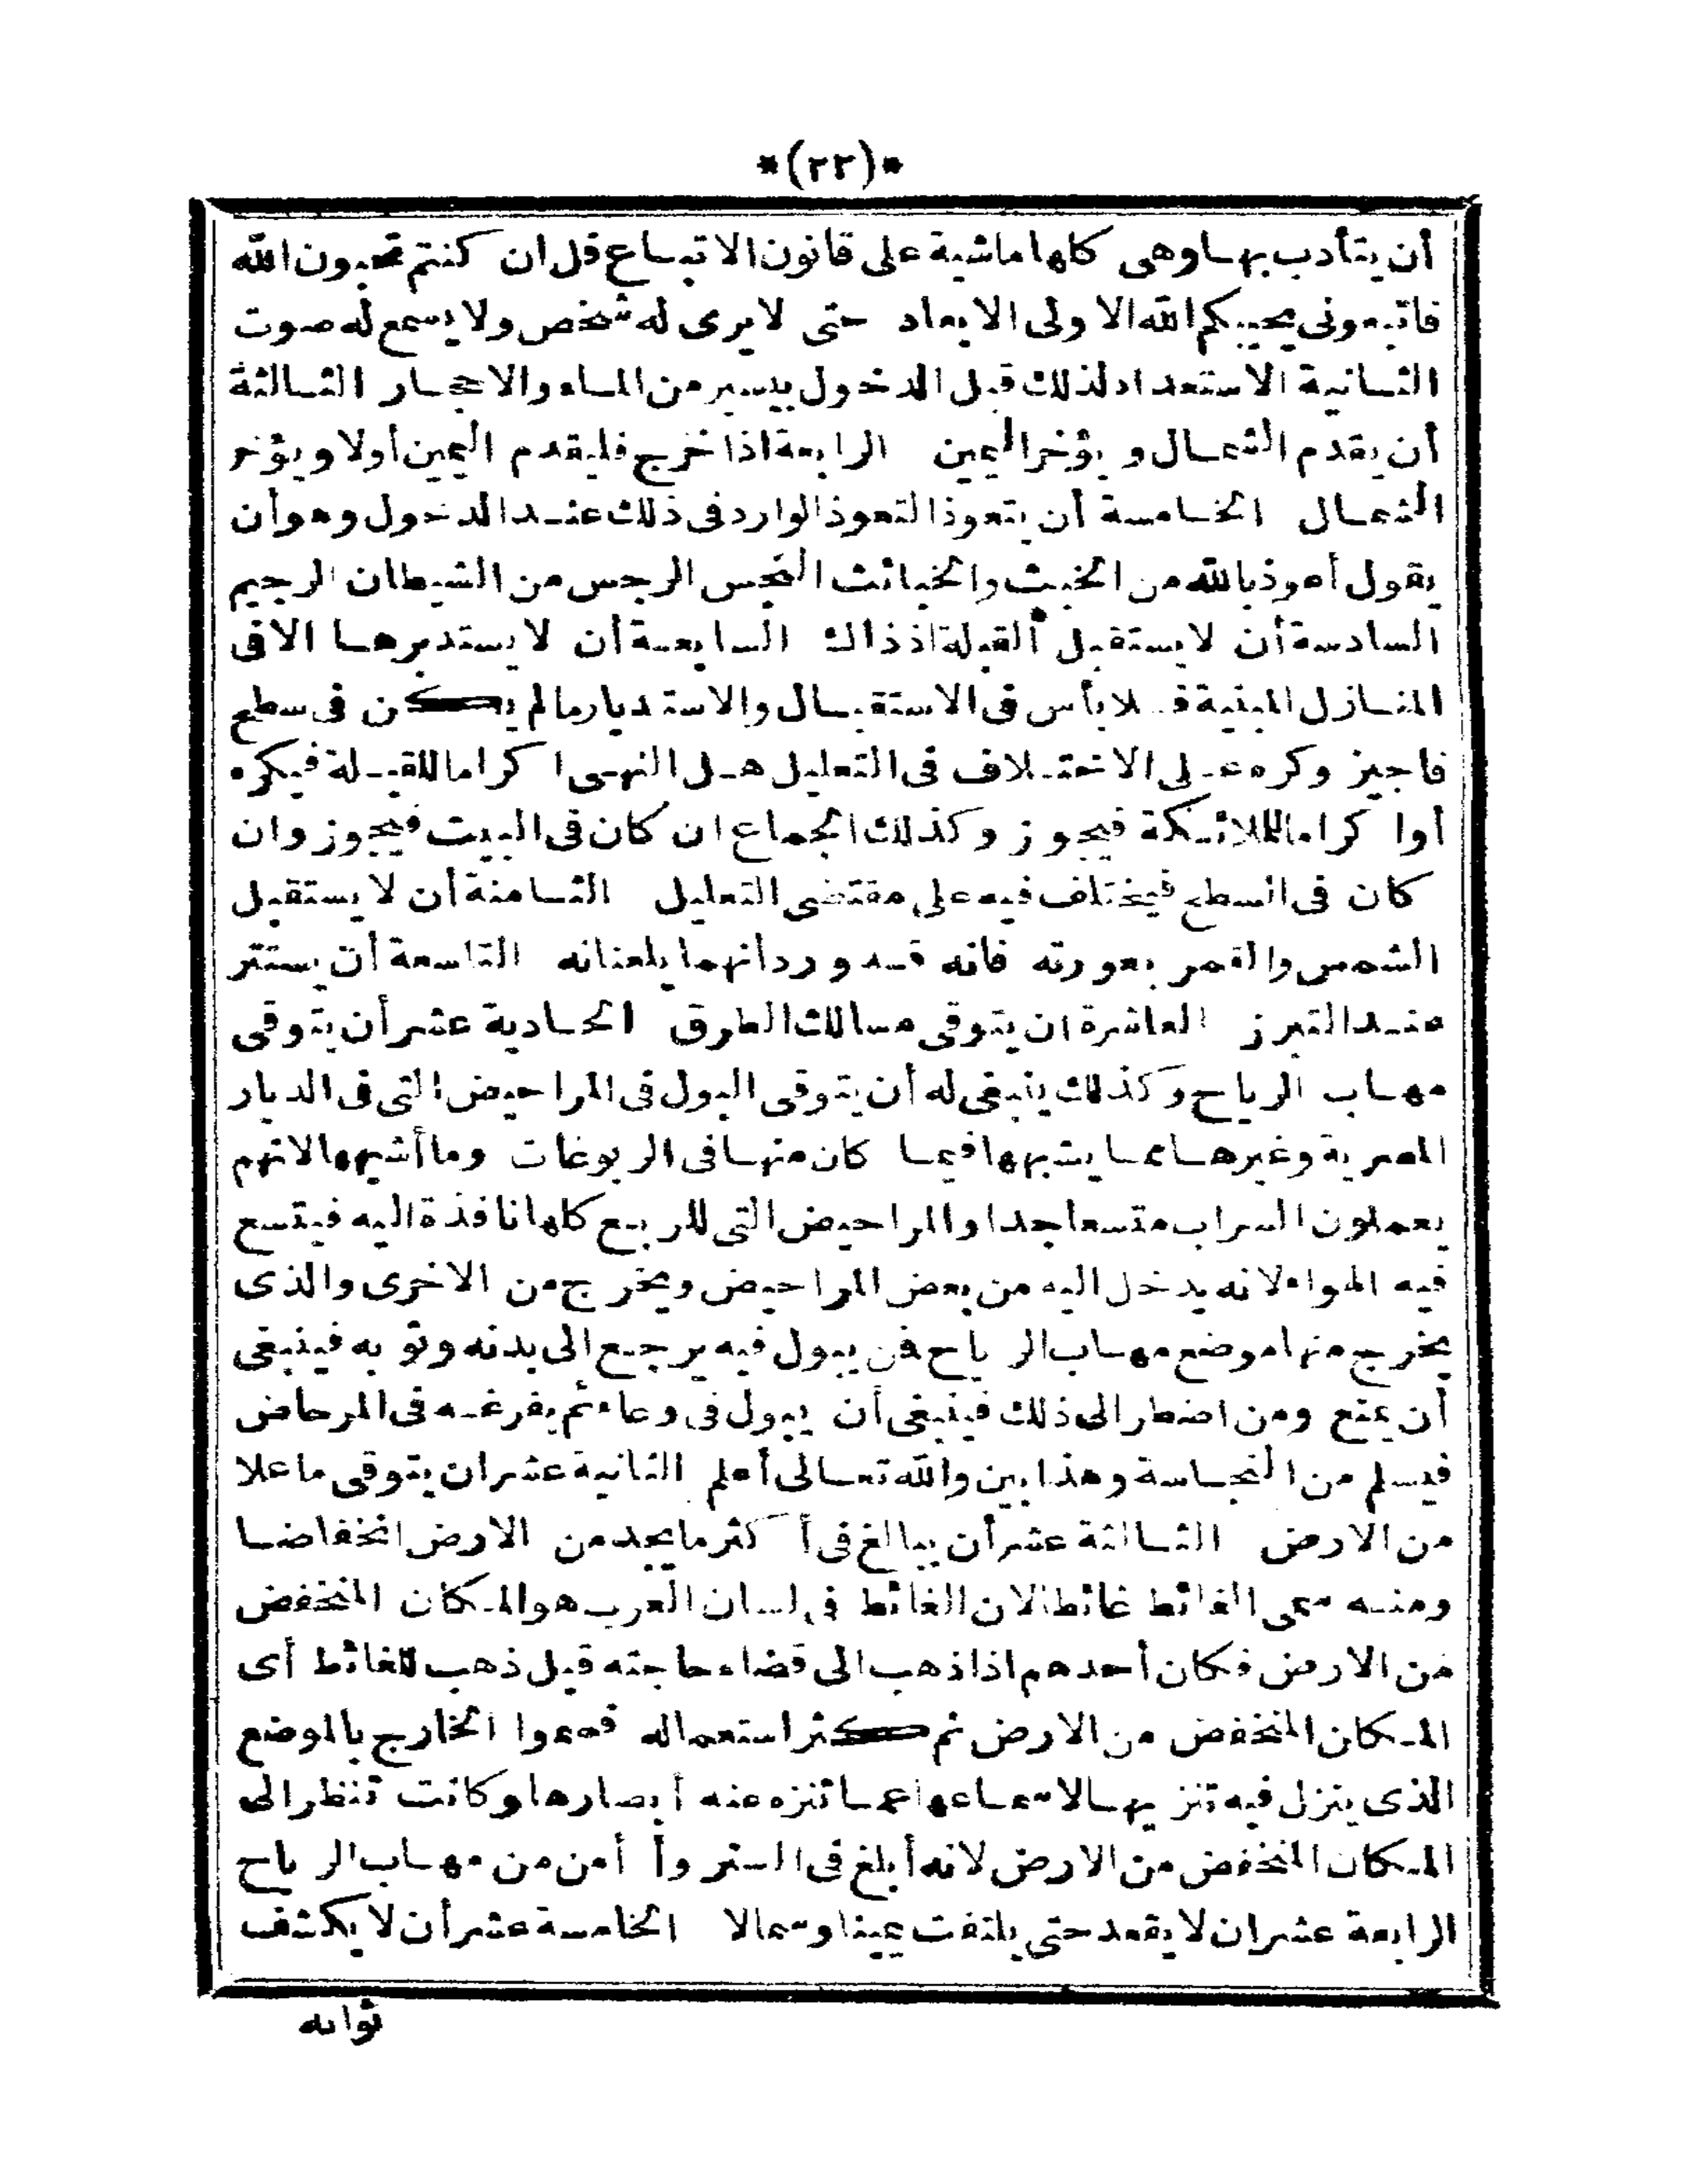 *(٢٢)*
أن يتأدب بها وهى كلها ماشية على قانون الاتباع قل ان كنتم تحبون الله
فاتبعونى يحببكم الله الاولى الابعاد حتى لا يرى له شخص ولا يسمع له صوت
الثانية الاستعداد لذلك قبل الدخول بيسير من الماء والاحجار الثالثة
أن يقدم الشمال ويؤخر اليمين الرابعة اذا خرج فليقدم اليمين أولا ويؤخر
الشمال الخامسة أن يتعوذ التعوذ الوارد فى ذلك عند الدخول وهو أن
يقول أعوذ بالله من الخبث والخبائث النجس الرجس من الشيطان الرجيم
السادسة أن لا يستقبل القبلة اذ ذاك السابعة أن لا يستدبرها الا فى
المنازل المبنية فلا بأس فى الاستقبال والاستدبار ما لم يكن فى سطح
فاجيز وكره على الاختلاف فى التعليل هل النهى اكراما للقبلة فيكره
أو اكراما للملائكة فيجوز وكذلك الجماع ان كان فى البيت فيجوز وان
كان فى السطح فيختلف فيه على مقتضى التعليل الثامنة أن لا يستقبل
الشمس والقمر بعورته فانه قد ورد انهما يلعنانه التاسعة أن يستتر
عند التبرز العاشرة ان يتوقى مسالك الطرق الحادية عشر أن يتوقى
مهاب الرياح وكذلك ينبغى له أن يتوقى البول فى المراحيض التى فى الديار
المصرية وغيرها مما يشبهها فيما كان منها فى الربوعات وما أشبهها لانهم
يعملون السراب متسعا جدا والمراحيض التى للربع كلها نافذة اليه فيتسع
فيه الهواء لانه يدخل اليه من بعض المراحيض ويخرج من الاخرى والذى
يخرج منها موضع مهاب الرياح فمن يبول فيه يرجع الى بدنه وثوبه فينبغى
أن يمنع ومن اضطر الى ذلك فينبغى أن يبول فى وعاء ثم يفرغه فى المرحاض
فيسلم من النجاسة وهذا بين والله تعالى أعلم الثانية عشر ان يتوقى ما علا
من الارض الثالثة عشر أن يبالغ فى أكثر ما يجد من الارض انخفاضا
ومنه سمى الغائط غائطا لان الغائط فى لسان العرب هو المكان المنخفض
من الارض فكان أحدهم اذا ذهب الى قضاء حاجته قيل ذهب للغائط أى
المكان المنخفض من الارض ثم كثر استعماله فسموا الخارج بالموضع
الذى ينزل فيه تنزيها لاسماعها عما تنزه عنه أبصارها وكانت تنظر الى
المكان المنخفض من الارض لانه أبلغ فى الستر وأأمن من مهاب الرياح
الرابعة عشر ان لا يقعد حتى يلتفت يمينا وشمالا الخامسة عشر أن لا يكشف
ثوابه